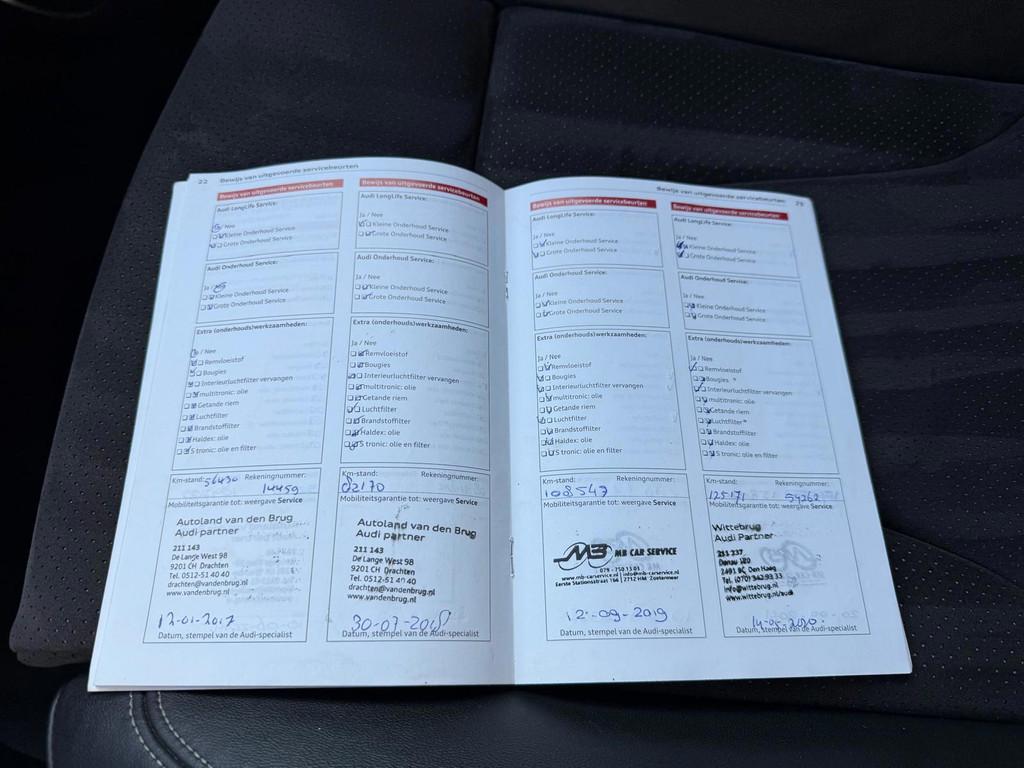 22 Bewijs van uitgevoerde servicebeurten
Bewijs van uitgevoerde servicebeurten
Audi LongLife Service:
Ja / Nee
Kleine Onderhoud Service
Grote Onderhoud Service
Audi Onderhoud Service:
Ja /
Kleine Onderhoud Service
Grote Onderhoud Service
Extra (onderhouds)werkzaamheden:
Ja / Nee
Remvloeistof
Bougies
Interieurluchtfilter vervangen
multitronic: olie
Getande riem
Luchtfilter
Brandstoffilter
Haldex: olie
S tronic: olie en filter
Km-stand: 56430 Rekeningnummer:
14459
Mobiliteitsgarantie tot: weergave Service
Autoland van den Brug
Audi partner
211 143
De Lange West 98
9201 CH Drachten
Tel. 0512-51 40 40
drachten@vandenbrug.nl
www.vandenbrug.nl
12-01-2017
Datum, stempel van de Audi-specialist
Bewijs van uitgevoerde servicebeurten
Audi LongLife Service:
Ja / Nee
Kleine Onderhoud Service
Grote Onderhoud Service
Audi Onderhoud Service:
Ja / Nee
Kleine Onderhoud Service
Grote Onderhoud Service
Extra (onderhouds)werkzaamheden:
Ja / Nee
Remvloeistof
Bougies
Interieurluchtfilter vervangen
multitronic: olie
Getande riem
Luchtfilter
Brandstoffilter
Haldex: olie
S tronic: olie en filter
Km-stand: Rekeningnummer:
82170
Mobiliteitsgarantie tot: weergave Service
Autoland van den Brug
Audi partner
211 143
De Lange West 98
9201 CH Drachten
Tel. 0512-51 40 40
drachten@vandenbrug.nl
www.vandenbrug.nl
30-07-2018
Datum, stempel van de Audi-specialist
Bewijs van uitgevoerde servicebeurten 23
Bewijs van uitgevoerde servicebeurten
Audi LongLife Service:
Ja / Nee
Kleine Onderhoud Service
Grote Onderhoud Service
Audi Onderhoud Service:
Ja / Nee
Kleine Onderhoud Service
Grote Onderhoud Service
Extra (onderhouds)werkzaamheden:
Ja / Nee
Remvloeistof
Bougies
Interieurluchtfilter vervangen
multitronic: olie
Getande riem
Luchtfilter
Brandstoffilter
Haldex: olie
S tronic: olie en filter
Km-stand: Rekeningnummer:
108547
Mobiliteitsgarantie tot: weergave Service
MB MB CAR SERVICE
079 - 750 13 01
www.mb-carservice.nl | info@mb-carservice.nl
Eerste Stationsstraat 104 | 2712 HM Zoetermeer
12-09-2019
Datum, stempel van de Audi-specialist
Bewijs van uitgevoerde servicebeurten
Audi LongLife Service:
Ja / Nee
Kleine Onderhoud Service
Grote Onderhoud Service
Audi Onderhoud Service:
Ja / Nee
Kleine Onderhoud Service
Grote Onderhoud Service
Extra (onderhouds)werkzaamheden:
Ja / Nee
Remvloeistof
Bougies *
Interieurluchtfilter vervangen
multitronic: olie
Getande riem
Luchtfilter *
Brandstoffilter
Haldex: olie
S tronic: olie en filter
Km-stand: Rekeningnummer:
125171 54262
Mobiliteitsgarantie tot: weergave Service
Wittebrug
Audi Partner
211 237
Donau 120
2491 BC Den Haag
Tel. (070) 342 93 33
info@wittebrug.nl
www.wittebrug.nl/audi
14-05-2020
Datum, stempel van de Audi-specialist